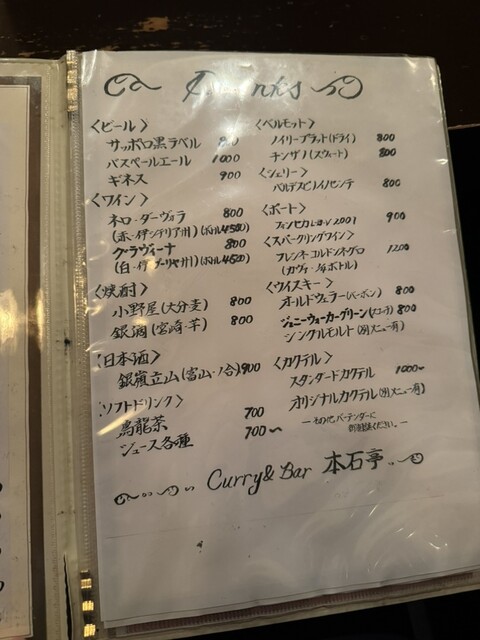 Drinks
<ビール>
サッポロ黒ラベル
バスペールエール 1000
ギネス 900
<ワイン>
ネロ・ダーヴォラ 800
(赤・伊・シチリア州)(ボトル4500)
クラヴィーナ 800
(白・伊・プーリャ州)(ボトル4500)
<焼酎>
小野屋(大分・麦) 800
銀滴(宮崎・芋) 800
<日本酒>
銀嶺立山(富山・一合) 900
ソフトドリンク>
烏龍茶 700
ジュース各種 700〜
<ベルモット>
ノイリープラット(ドライ) 800
チンザノ(スウィート) 800
<シェリー>
バルデスピノイノセンテ 800
<ポート>
フォンセカ 2001 900
<スパークリングワイン>
フレシネコルドンネグロ 1200
(カヴァ・1/4ボトル)
<ウイスキー>
オールドウェラー(バーボン) 800
ジョニーウォーカーグリーン(スコッチ) 800
シングルモルト(別メニュー有)
<カクテル>
スタンダードカクテル 1000〜
オリジナルカクテル(別メニュー有)
—その他バーテンダーに
御相談ください。—
Curry&Bar 本石亭